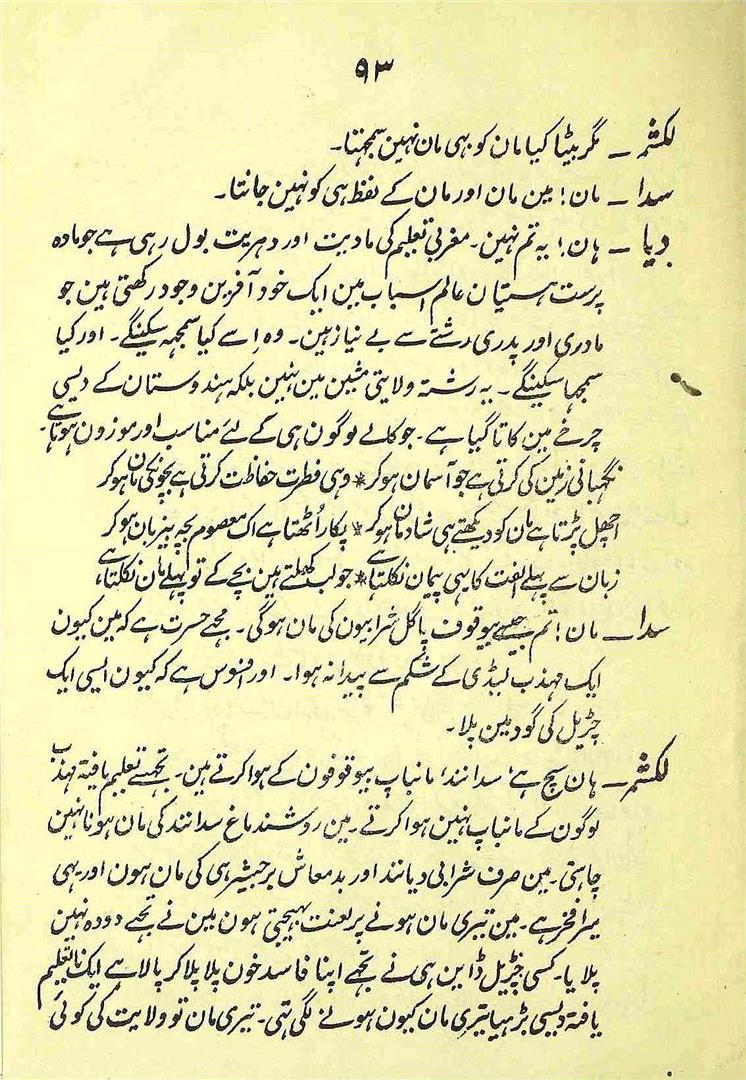 ۹۳
لکشمر ـ مگر بیٹا کیا مان کو بہی مان نہین سمجھتا۔
سدا ـ مان! مین مان اور مان کے لفظ ہی کو نہین جانتا۔
دیا ـ ہان! یہ تم نہین۔ مغربی تعلیم کی مادیت اور دہریت بول رہی ہے جو مادہ
پرست ہستیان عالم اسباب مین ایک خود آفرین وجود رکھتی ہین جو
مادری اور پدری رشتے سے بے نیاز ہین۔ وہ اِسے کیا سمجہہ سکینگے۔ اور کیا
سمجہا سکینگے۔ یہ رشتہ ولایتی مشین مین نہین بلکہ ہندوستان کے دیسی
چرخے مین کاتا گیا ہے۔ جو کالے لوگون ہی کے لئے مناسب اور موزون ہوتا ہے۔
نگہبانی زمین کی کرتی ہے جو آسمان ہو کر * وہی فطرت حفاظت کرتی ہے بچونکی مان ہو کر
اچھل پڑتا ہے مان کو دیکھتے ہی شادمان ہو کر * پکار اُٹھتا ہے اک معصوم بچہ بیزبان ہو کر
زبان سے پہلے الفت کا یہی پیمان نکلتا ہے * جو لب کھلتے ہین بچے کے تو پہلے مان نکلتا ہے
سدا ـ مان! تم جیسے بیوقوف پاگل شرابیون کی مان ہوگی۔ مجھے حسرت ہے کہ مین کیون
ایک مہذب لیڈی کے شکم سے پیدا نہ ہوا۔ اور افسوس ہے کہ کیون ایسی ایک
چڑیل کی گود مین پلا۔
لکشمر ـ ہان سچ ہے، سدانند، مانباپ بیوقوفون کے ہوا کرتے ہین۔ تجہسے تعلیم یافتہ مہذب
لوگون کے مانباپ نہین ہوا کرتے۔ مین روشندماغ سدانند کی مان ہونا نہین
چاہتی۔ مین صرف شرابی دیانند اور بدمعاش برجیشر ہی کی مان ہون اور یہی
میرا فخر ہے۔ مین تیری مان ہونے پر لعنت بہیجتی ہون مین نے تجہے دودہ نہین
پلایا۔ کسی چڑیل ڈاین ہی نے تجہے اپنا فاسد خون پلا پلا کر پالا ہے ایک ناتعلیم
یافتہ دیسی بڑہیا تیری مان کیون ہونے لگی تہی۔ تیری مان تو ولایت کی کوئی